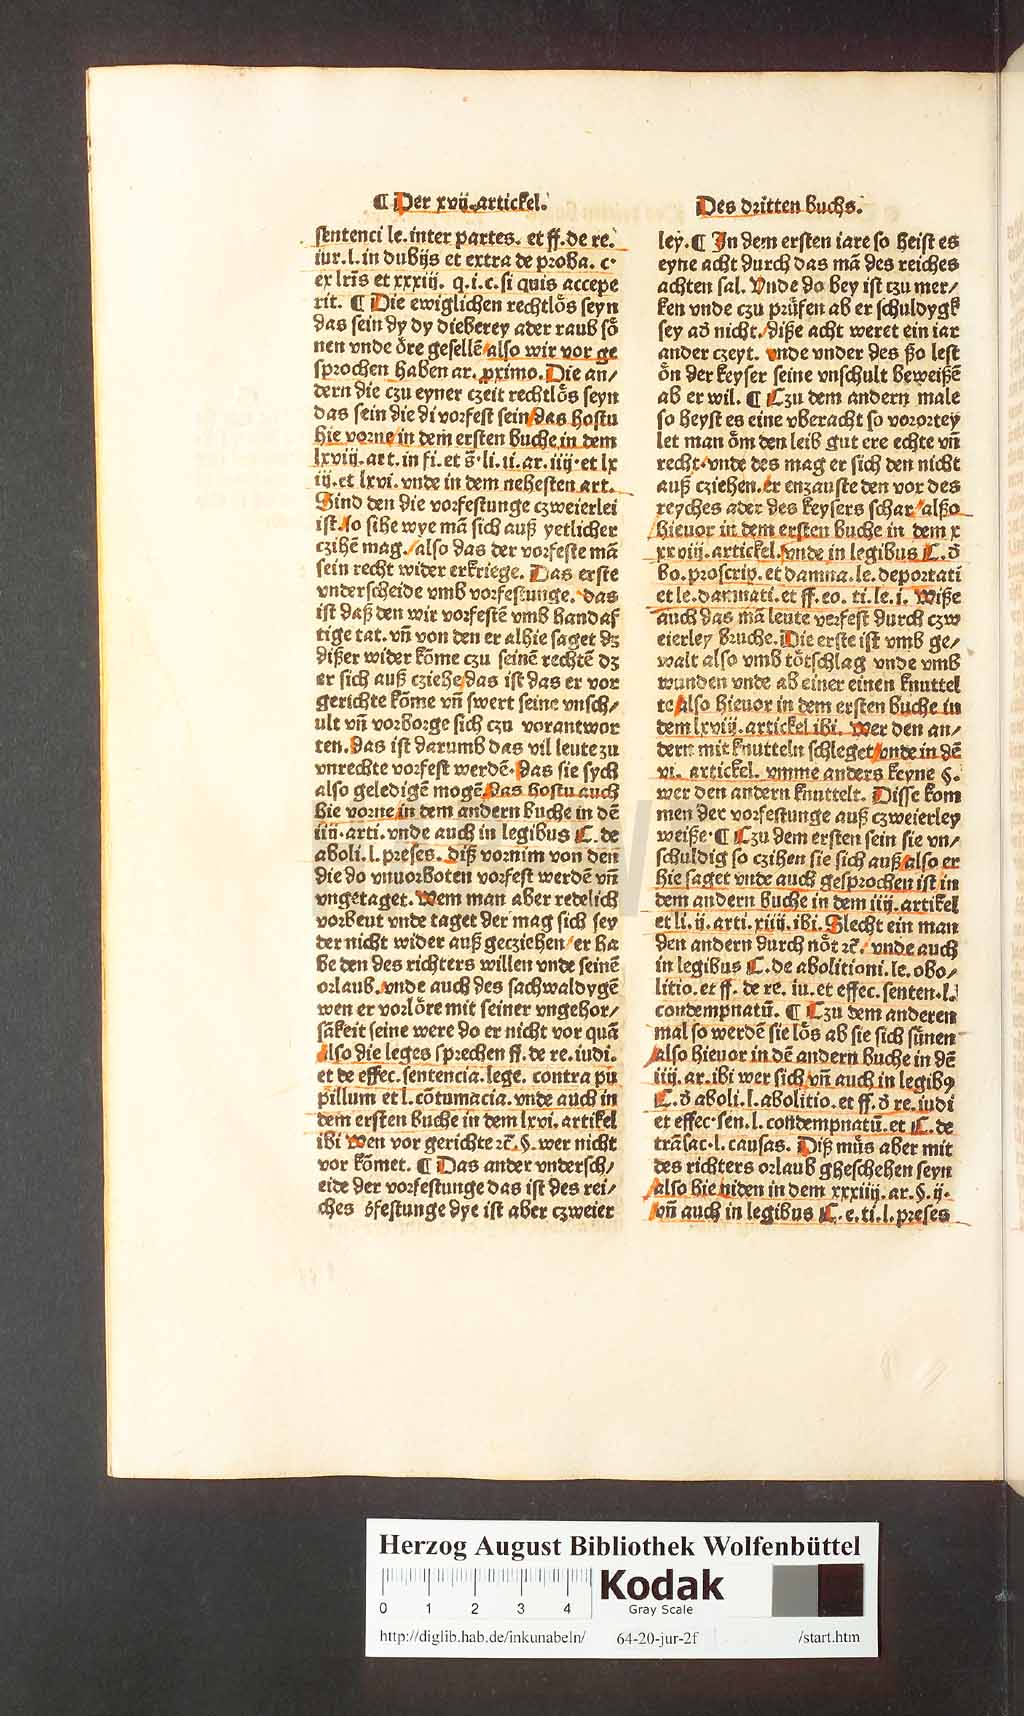 ¶ Der xvij. artickel.
sentenci le. inter partes. et ff. de re.
iur. l. in dubijs et extra de proba. c.
ex lr̃is et xxxiij. q. i. c. si quis accepe
rit. ¶ Die ewiglichen rechtlös seyn
das sein dy dy dieberey ader raub sö
nen vnde öre gesellē also wir vor ge
sprochen haben ar. proximo. Die an/
dern die czu eyner czeit rechtlös seyn
das sein die di vorfest sein das hostu
hie vorne in dem ersten buche in dem
lxviij. art. in fi. et s̄. li. ii. ar. iiij. et lx
iij. et lxvi. vnde in dem nehesten art.
Sind den die vorfestunge czweierlei
ist. so sihe wye mā sich auß yetlicher
czihē mag./ also das der vorfeste mā
sein recht wider erkriege. Das erste
vnderscheide vmb vorfestunge. das
ist daß den wir vorfestē vmb handaf
tige tat. vñ von den er alhie saget dz
dißer wider kōme czu seinē rechtē dz
er sich auß cziehe das ist das er vor
gerichte kōme vñ swert seine vnsch/
ult vñ vorborge sich czu vorantwor
ten. Das ist darumb das vil leute zu
vnrechte vorfest werdē. Das sie sych
also geledigē mogē Das hostu auch
hie vorne in dem andern buche in dē
iiij. arti. vnde auch in legibus C. de
aboli. l. preses. Diß vornim von den
die do vnuorboten vorfest werdē vñ
vngetaget. Wem man aber redelich
vorbeut vnde taget der mag sich sey
der nicht wider auß gecziehen/ er ha
be den des richters willen vnde seinē
orlaub. vnde auch des sachwaldygē
wen er vorlöre mit seiner vngehor/
sākeit seine were do er nicht vor quā
Also die leges sprechen ff. de re. iudi.
et de effec. sentencia. lege. contra pu
pillum et l. cōtumacia. vnde auch in
dem ersten buche in dem lxvi. artikel
ibi Wen vor gerichte ⁊c̄. §. wer nicht
vor kōmet. ¶ Das ander vndersch/
eide der vorfestunge das ist des rei/
ches v̄festunge dye ist aber czweier
Des dritten buchs.
ley. ¶ In dem ersten iare so heist es
eyne acht durch das mā des reiches
achten sal. Vnde do bey ist czu mer/
ken vnde czu prüfen ab er schuldygk
sey ad̄ nicht./ diße acht weret ein iar
ander czeyt. vnde vnder des ßo lest
ön der keyser seine vnschult beweißē
ab er wil. ¶ Czu dem andern male
so heyst es eine vberacht so vorortey
let man öm den leib gut ere echte vñ
recht. vnde des mag er sich den nicht
auß cziehen. er enzauste den vor des
reyches ader des keysers schar./ alßo
hieuor in dem ersten buche in dem x
xxviij. artickel. vnde in legibus C. d̄
bo. proscrip. et damna. le. deportati
et le. damnati. et ff. eo. ti. le. i. Wiße
auch das mā leute verfest durch czw
eierley bruche. Die erste ist vmb ge/
walt also vmb tötschlag vnde vmb
wunden vnde ab einer einen knuttel
te also hieuor in dem ersten buche in
dem lxviij. artickel ibi. Wer den an/
dern mit knutteln schleget vnde in dē
vi. artickel. vmme anders keyne §.
wer den andern knuttelt. Disse kom
men der vorfestunge auß czweierley
weiße. ¶ Czu dem ersten sein sie vn/
schuldig so czihen sie sich auß also er
hie saget vnde auch gesprochen ist in
dem andern buche in dem iiij. artikel
et li. ij. arti. xiiij. ibi. Slecht ein man
den andern durch nöt ⁊c̄./ vnde auch
in legibus C. de abolitioni. le. obo/
litio. et ff. de re. iu. et effec. senten. l.
condempnatū. ¶ Czu dem anderen
mal so werdē sie lös ab sie sich sünen
also hieuor in dē andern buche in dē
iiij. ar. ibi wer sich vñ auch in legibꝰ
C. d̄ aboli. l. abolitio. et ff. d̄ re. iudi
et effec. sen. l. condempnatū. et C. de
trāsac. l. causas. Diß müs aber mit
des richters orlaub gheschehen seyn
also hie niden in dem xxxiiij. ar. §. ij.
vñ auch in legibus C. e. ti. l. preses
Herzog August Bibliothek Wolfenbüttel
0 1 2 3 4
Kodak
Gray Scale
http://diglib.hab.de/inkunabeln/ 64-20-jur-2f /start.htm